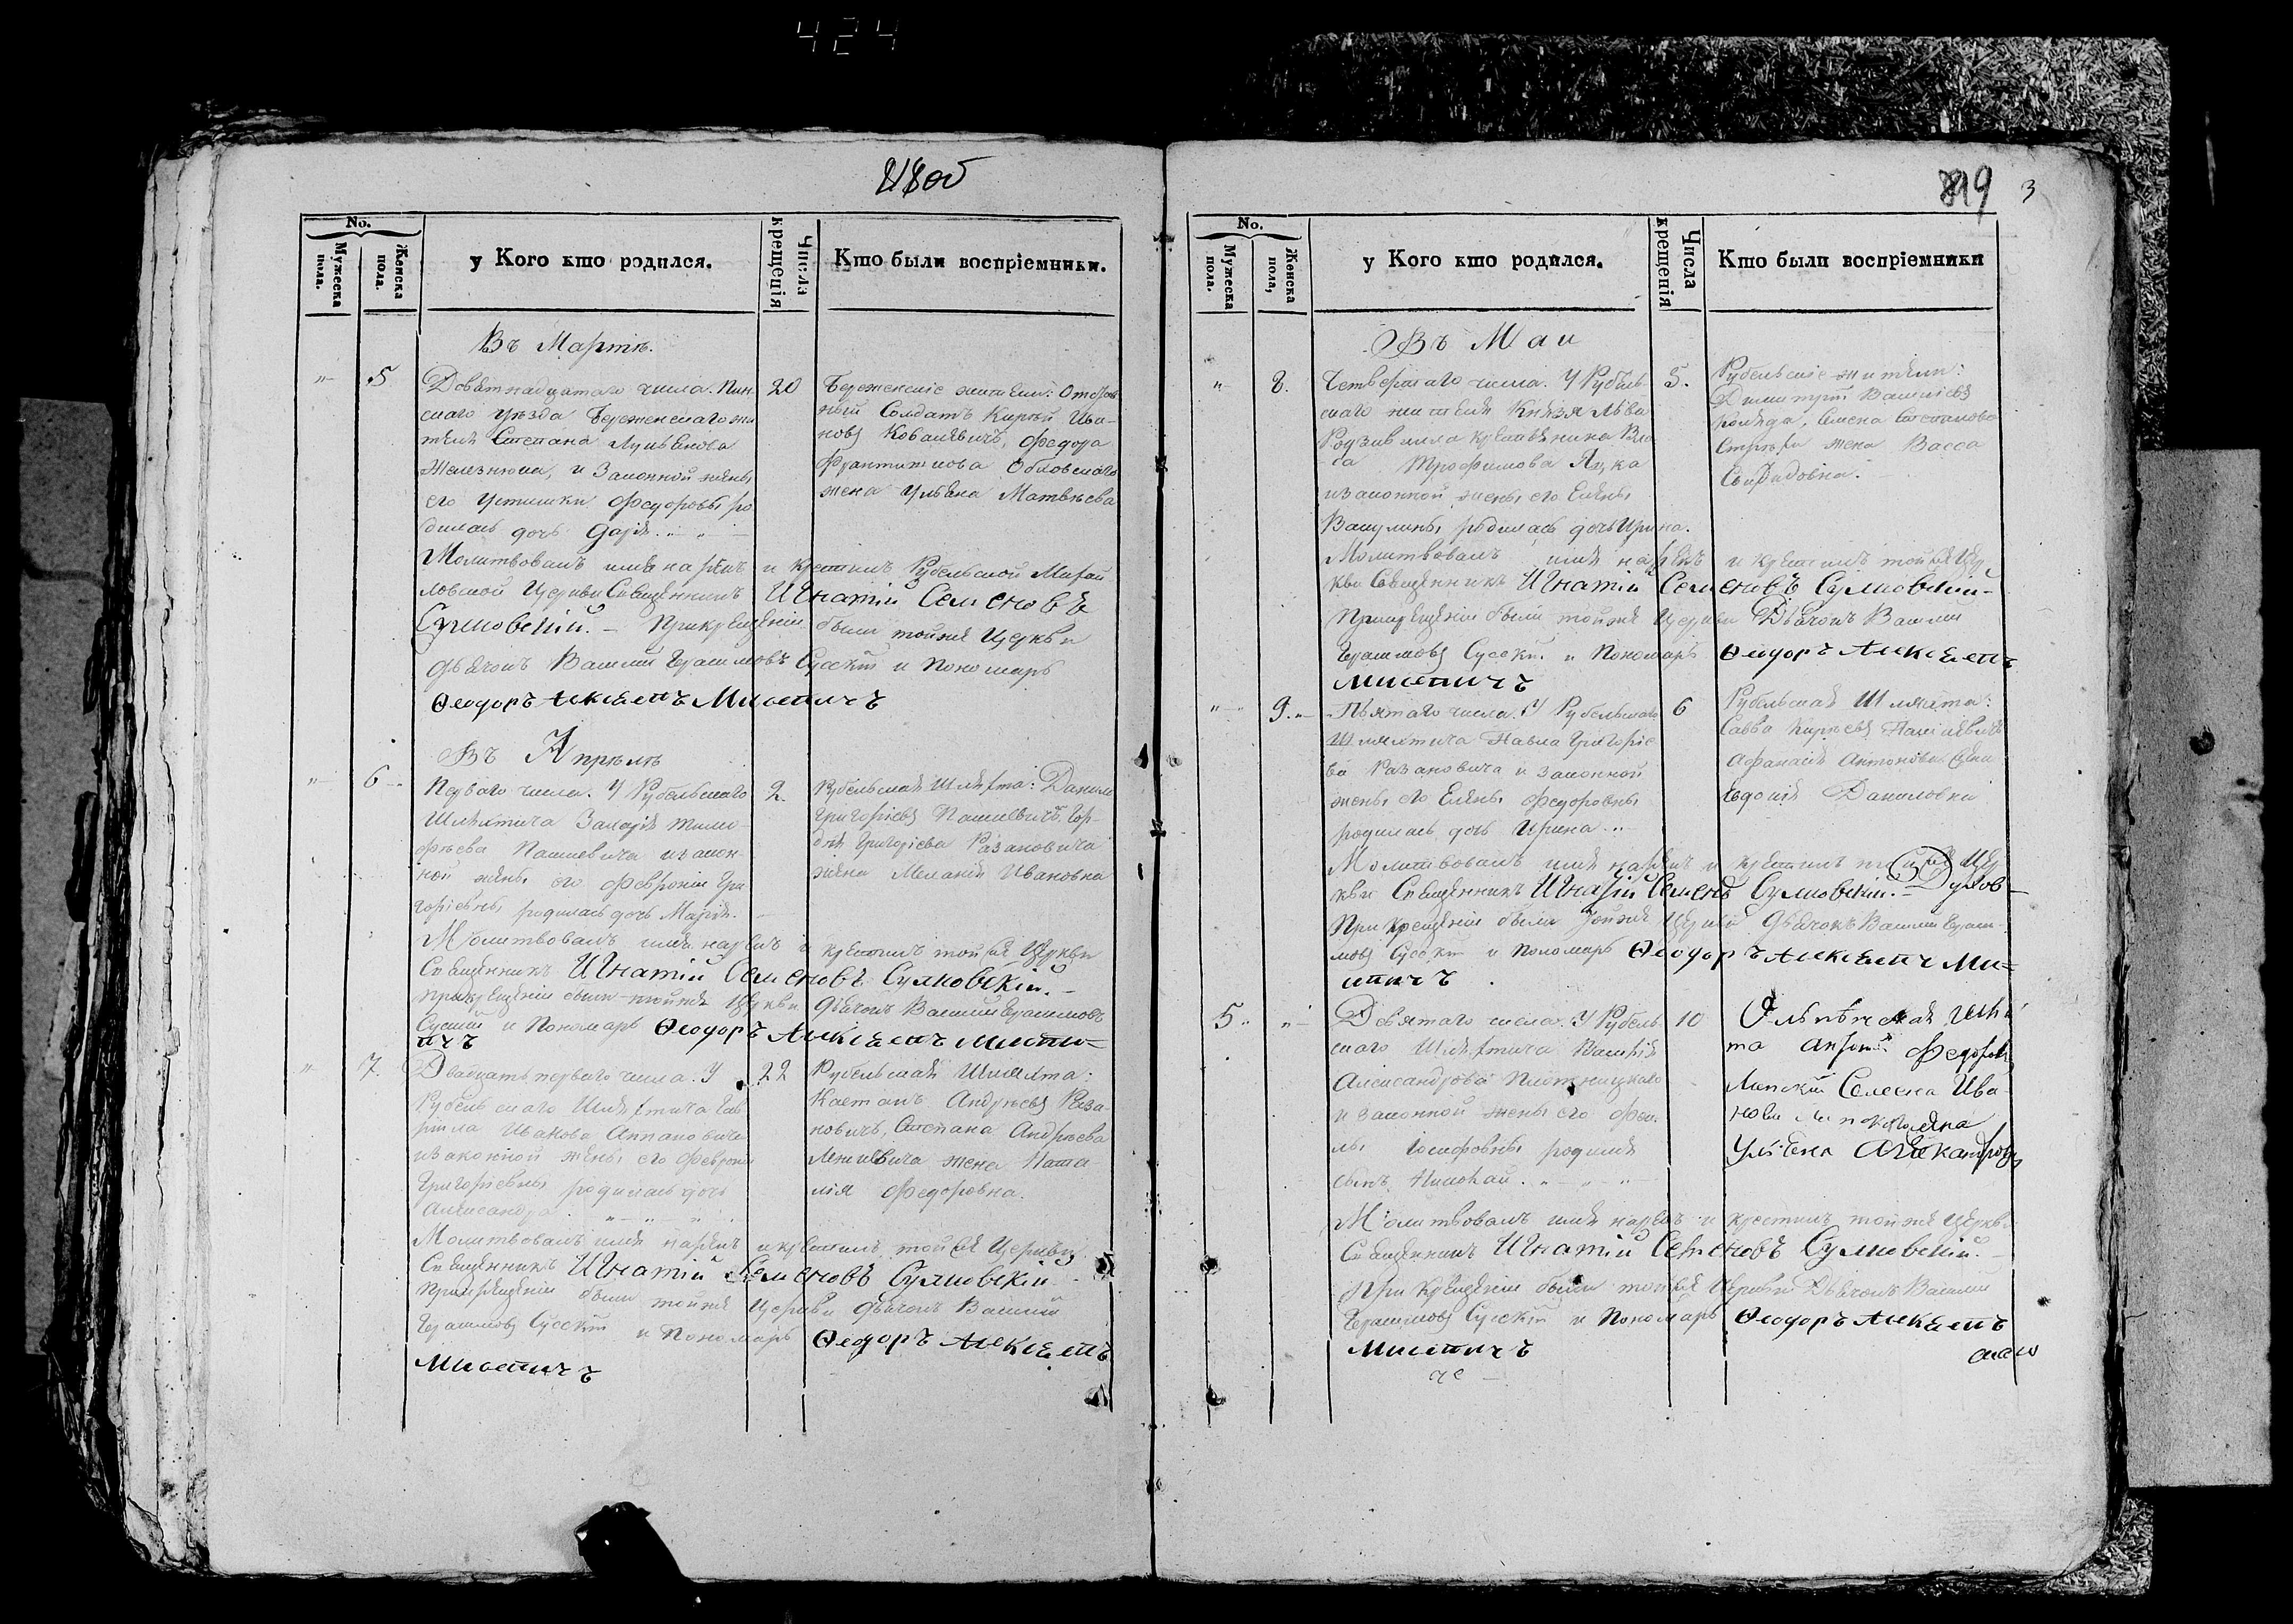 424
No.
Мужеска пола.
Женска пола.
у Кого кто родился.
Числа крещенія
Кто были воспріемники.
Въ Мартѣ.
5
Девятнадцатаго числа. Пин-
скаго уѣзда Бережскаго жи
теля Степана Лукьянова
и Законной жены
его Устиньи Федоровы ро
дилась дочь Дарія.
20
жители: Отстав
ный Солдатъ Ива-
новъ Ковалевичъ, Федора
жена Ульяна Матвѣева
Молитвовалъ имя нарекъ и крестилъ Рубельской Михай
ловской Церкви Священникъ Игнатій Семеновъ
Сулковскій. – При крещеніи были тойже Церкви
дьячокъ Василий Герасимовъ Сусскій и Пономарь
Ѳеодоръ Алексѣевъ Мисевичъ
Въ Апрѣлѣ
6
Перваго числа. У Рубельскаго
Шляхтича Захарія Тимо-
фѣева Пашкевича и закон-
ной жены его Февроніи Гри
горіевны родилась дочь Марія.
2.
Рубельская Шляхта: Данило
Григорьевъ Пашкевичъ, Гор-
дѣя Григорьева Разановича
жена Меланія Ивановна
Молитвовалъ имя нарекъ и крестилъ тойже Церкви
Священникъ Игнатій Семеновъ Сулковскій. –
При крещеніи были тойже Церкви дьячокъ Василий Герасимовъ
Сусскій и Пономарь Ѳеодоръ Алексѣевъ Мисеви=
чъ
7.
Двадцать перваго числа. У
Рубельскаго Шляхтича Гав
рила Иванова
и законной жены его Февроніи
Григорьевны родилась дочь
Александра.
22
Рубельская Шляхта:
Каетанъ Андреевъ Раза-
новичъ, Степана Андреева
жена Ната-
лія Федоровна.
Молитвовалъ имя нарекъ и крестилъ тойже Церкви
Священникъ Игнатій Семеновъ Сулковскій
При крещеніи были тойже Церкви дьячокъ Василий
Герасимовъ Сусскій и Пономарь Ѳеодоръ Алексѣевъ
Мисевичъ
3
No.
Мужеска пола.
Женска пола,
у Кого кто родился.
Числа крещенія
Кто были воспріемники
Въ Маи
8.
Четвертаго числа. У Рубель-
скаго жителя Князя Льва
Радзивилла крестьянина Вла
са Трофимова Яцка
и законной жены его Елены
родилась дочь Ирина.
5.
Рубельскіе жители:
Димитрій Васильевъ
Коляда, Семена Степанова
жена Васса
Молитвовалъ имя нарекъ и крестилъ тойже Цер
кви Священникъ Игнатій Семеновъ Сулковскій –
При крещеніи были тойже Церкви Дьячокъ Василий
Герасимовъ Сусскій и Пономарь Ѳеодоръ Алексѣевъ
Мисевичъ
9.
Пятаго числа. У Рубельскаго
Шляхтича Павла Григоріе
ва Разановича и законной
жены его Елены Федоровны
родилась дочь Ирина
6
Рубельская Шляхта:
Савва Пашкевичъ
Афанасія Антонова жена
Евдокія Даниловна
Молитвовалъ имя нарекъ и крестилъ тойже Цер
кви Священникъ Игнатій Семеновъ Сулковскій. –
При крещеніи были тойже Церкви дьячокъ Василий Гераси-
мовъ Сусскій и Пономарь Ѳеодоръ Алексѣевъ Ми=
севичъ
5
Девятаго числа. У Рубель
скаго Шляхтича Василія
Александрова Плотницкаго
и законной жены его Фек-
лы Іосифовны родился
сынъ Николай.
10
Семена Ива-
нова жена
Ульяна Александрова
Молитвовалъ имя нарекъ и крестилъ тойже Церкви
Священникъ Игнатій Семеновъ Сулковскій. –
При крещеніи были тойже Церкви Дьячокъ Василий
Герасимовъ Сусскій и Пономарь Ѳеодоръ Алексѣевъ
Мисевичъ